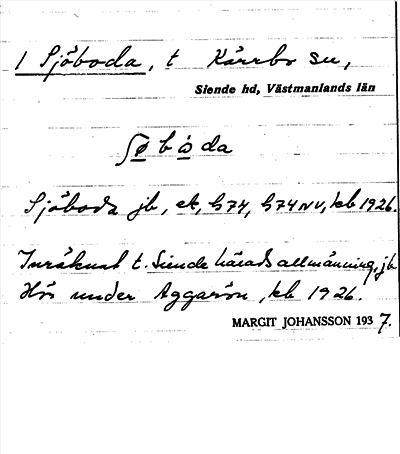 1 Sjöboda, t Kärrbo sn,
Siende hd, Västmanlands län
ʃøbòda
Sjöboda jb, ek, G74, G74NV, kb 1926.
Inräknat t. Siende härads allmänning, jb
Hös under Aggarön, kb 1926.
MARGIT JOHANSSON 1937.